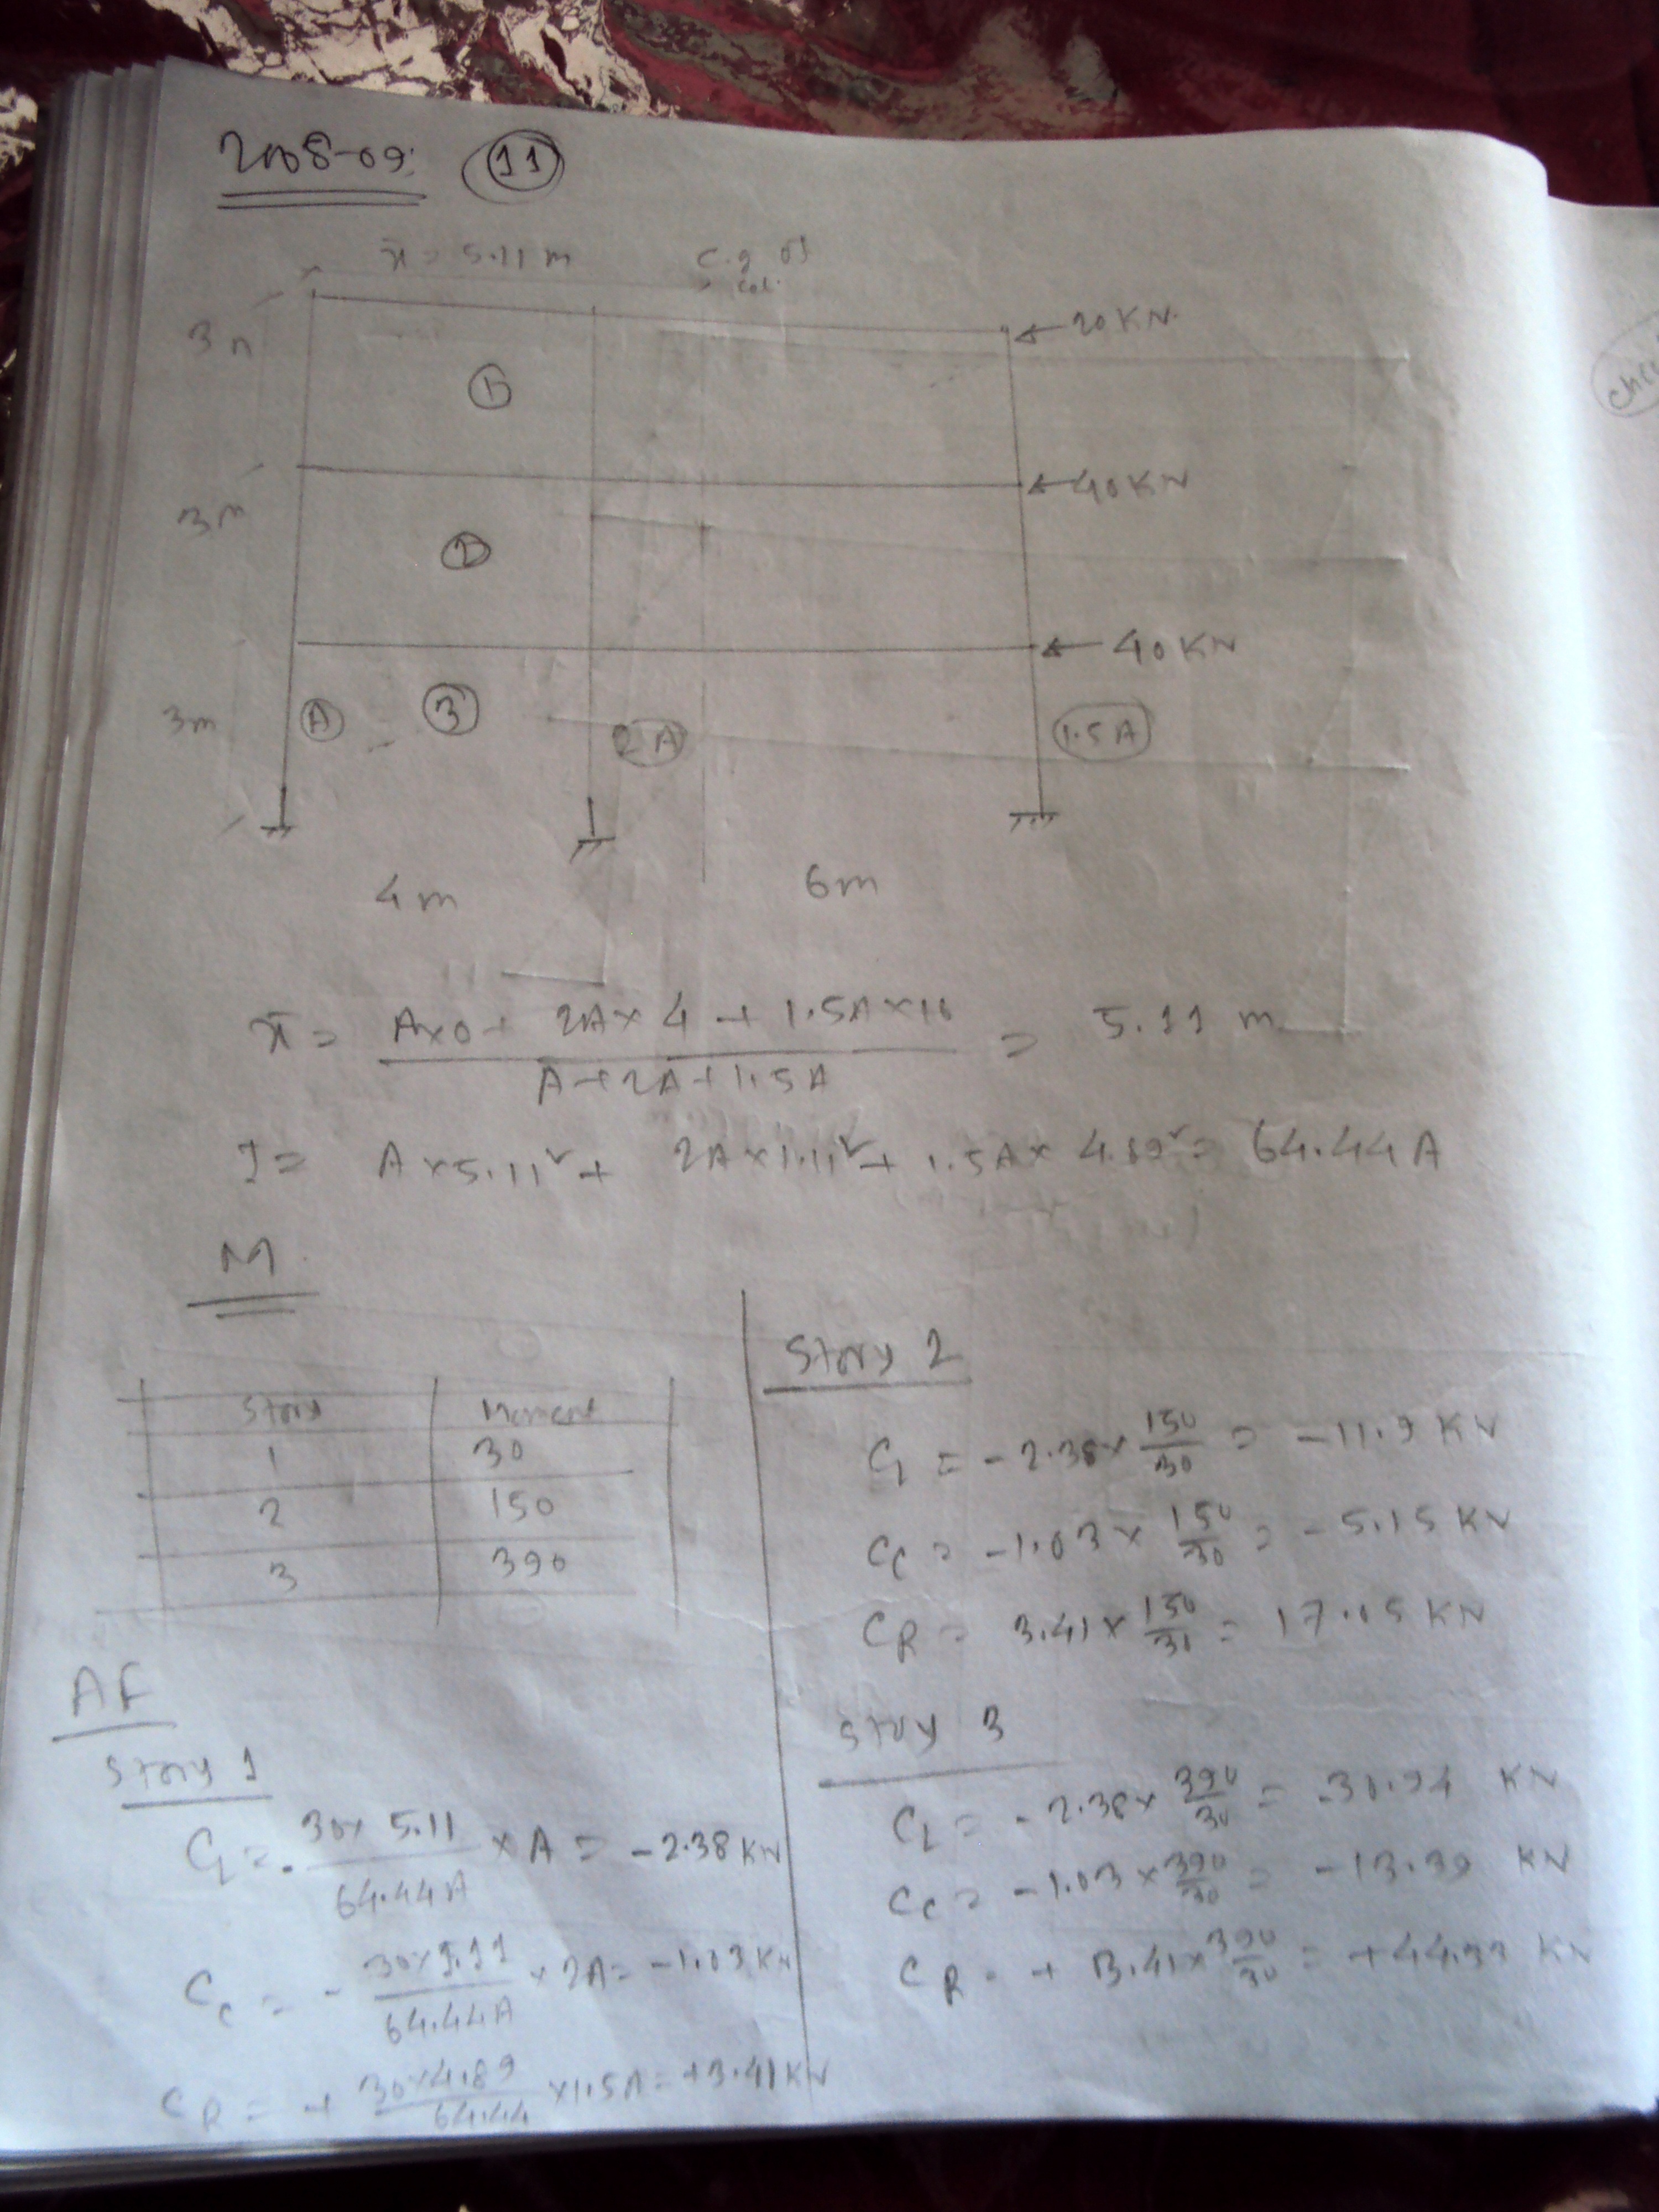 2008-09: (11)
x̄ = 5.11 m c.g of
col.
3m
← 20 KN
1
← 40 KN
3m
2
← 40 KN
3m A 3 2A 1.5A
4m 6m
x̄ = (A×0 + 2A×4 + 1.5A×10) / (A+2A+1.5A) = 5.11 m
I = A×5.11² + 2A×1.11² + 1.5A×4.89² = 64.44A
M
Story Moment
1 30
2 150
3 390
AF
Story 1
C_L = - (30×5.11)/(64.44A) × A = -2.38 KN
C_C = - (30×1.11)/(64.44A) × 2A = -1.03 KN
C_R = + (30×4.89)/(64.44) × 1.5A = +3.41 KN
Story 2
C_L = -2.38 × 150/30 = -11.9 KN
C_C = -1.03 × 150/30 = -5.15 KN
C_R = 3.41 × 150/30 = 17.05 KN
Story 3
C_L = -2.38 × 390/30 = -30.94 KN
C_C = -1.03 × 390/30 = -13.39 KN
C_R = + 3.41 × 390/30 = +44.33 KN